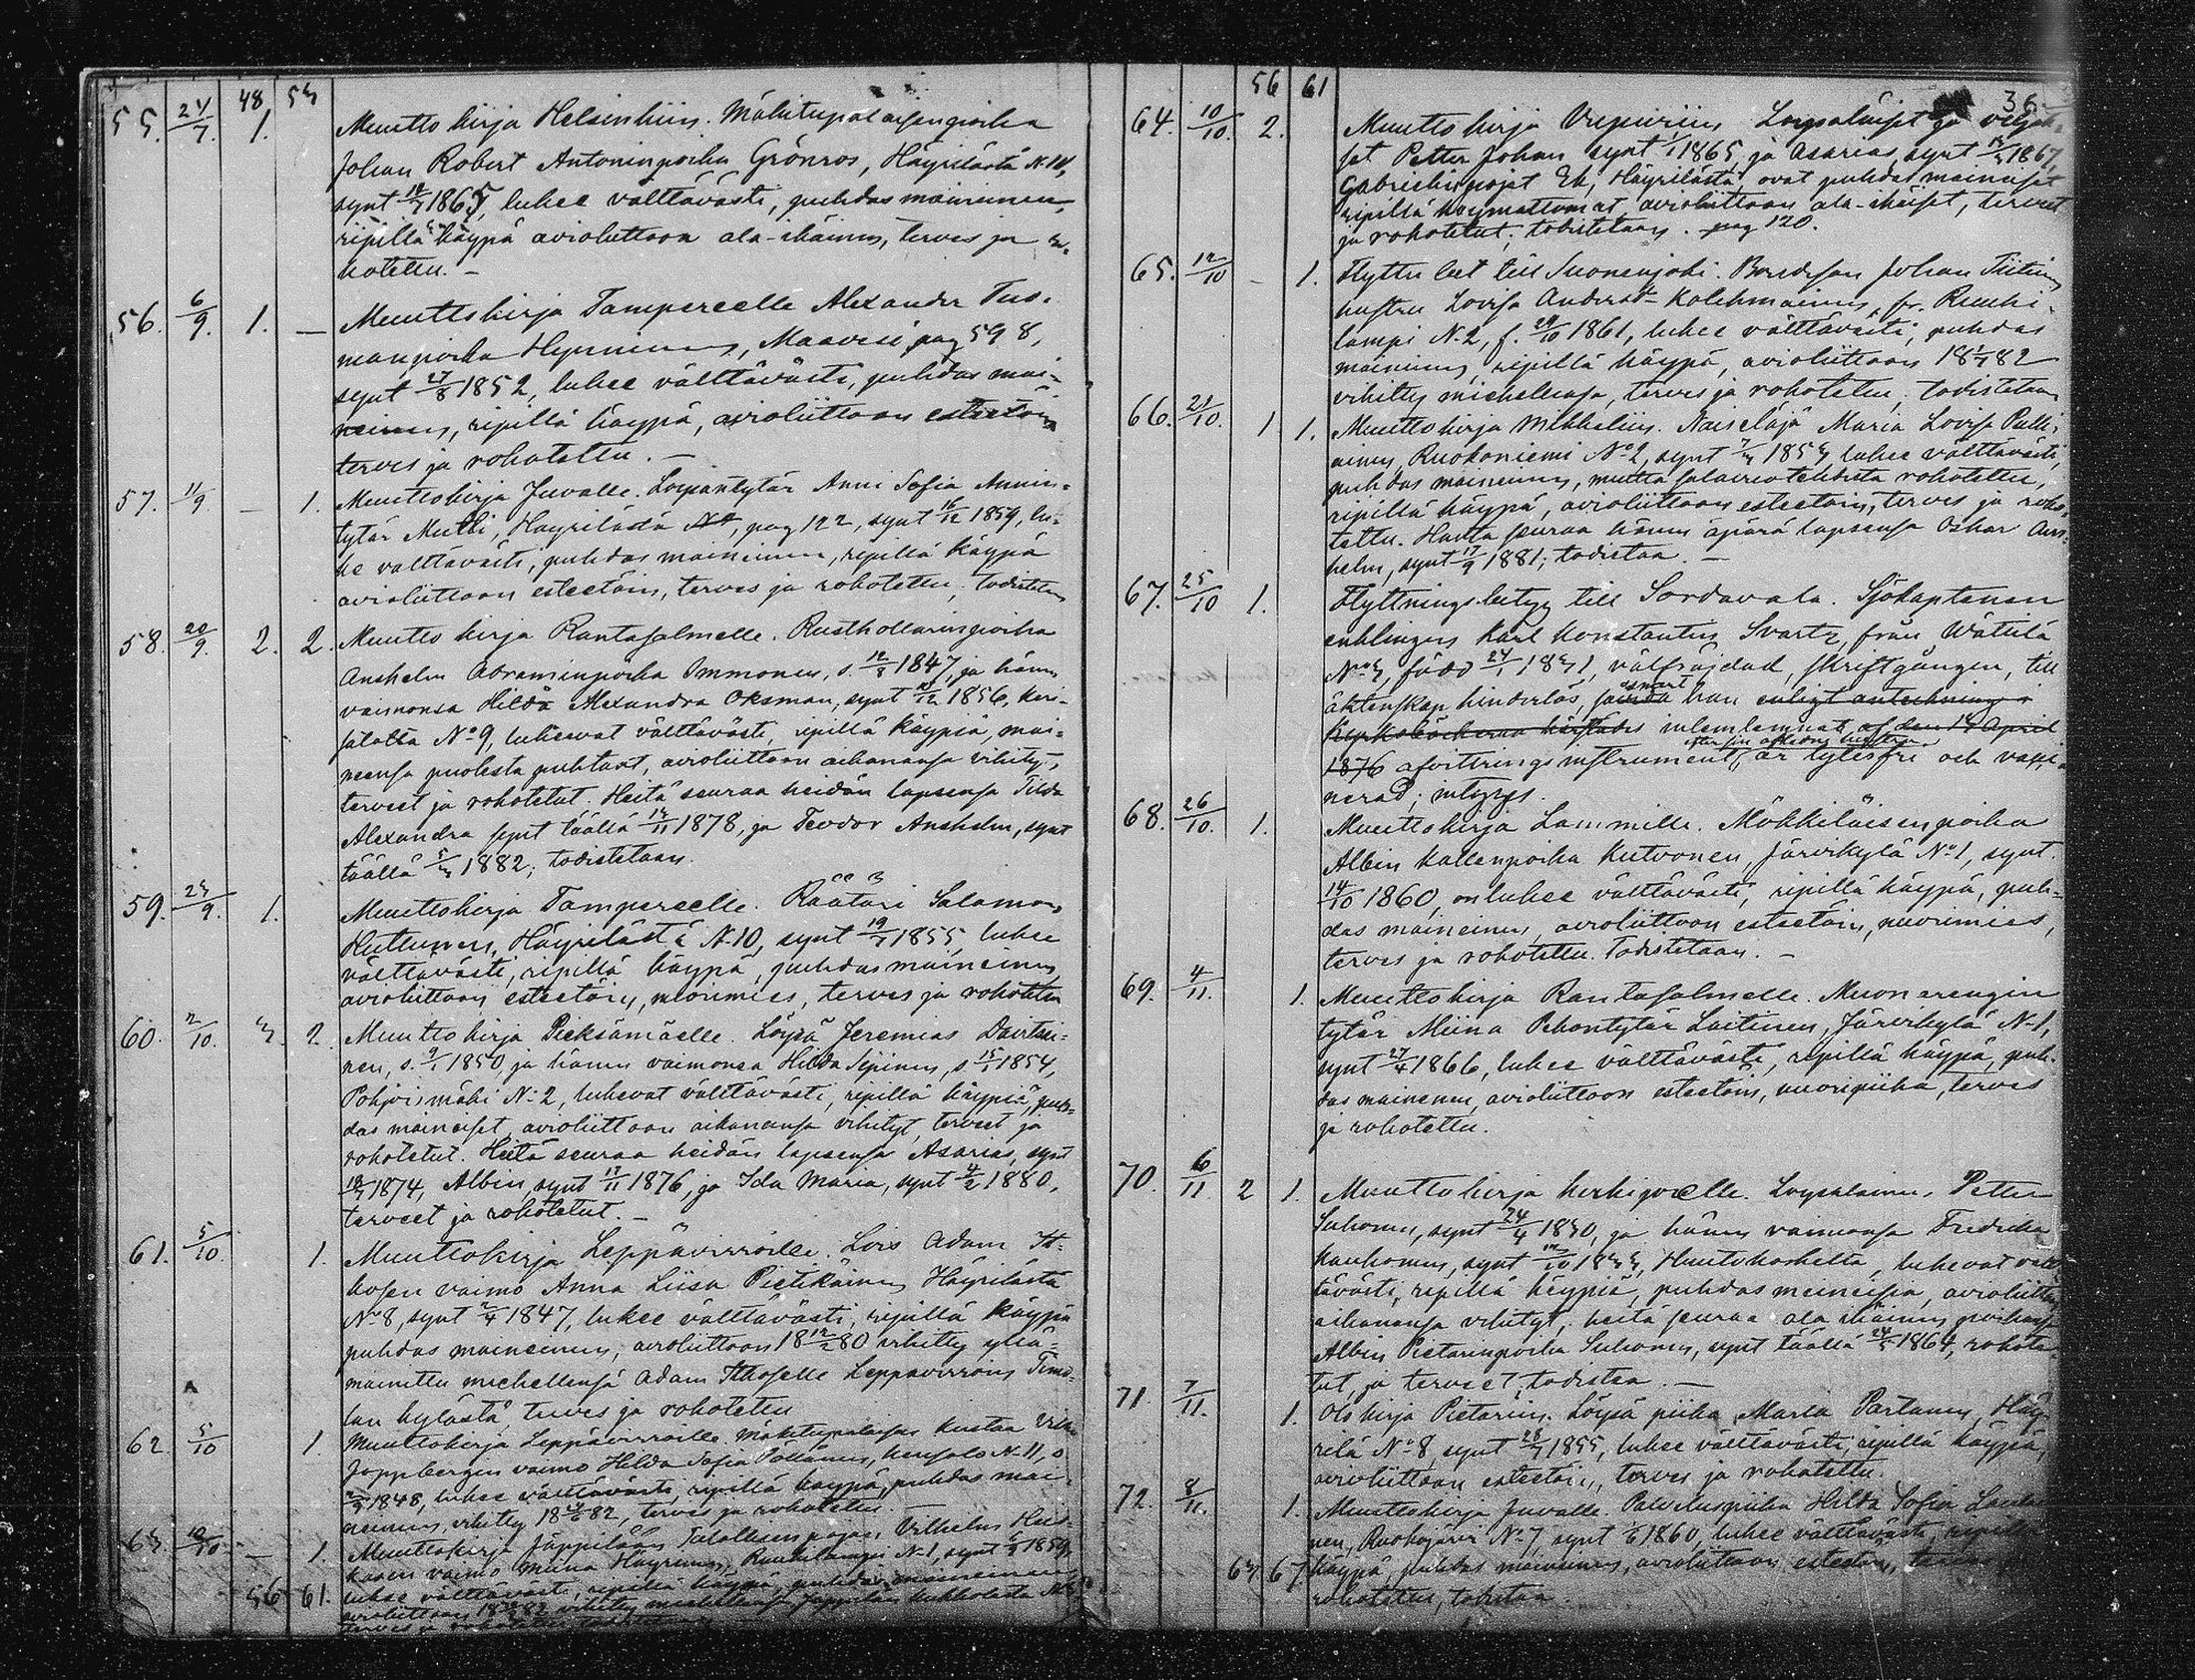 48. 53
55. 24/7. 1. Muuttokirja Helsinkiin. Mäkitupalaisenpoika
Johan Robert Antoninpoika Grönros, Häyrilästä N:
synt 1865, lukee välttävästi, puhdasmaineinen,
ripillä käypä avioliittoon ala-ikäinen, terves ja ro-
kotettu. —
56. 6/9. 1. — Muuttokirja Tampereelle Alexander Tuo-
manpoika Hynninen, Maavesi pag 598,
synt 27/8 1852, lukee välttävästi, puhdas mai-
neinen, ripillä käypä, avioliittoon esteetöin
terves ja rokotettu. —
57. 11/9 — 1. Muuttokirja Juvalle. Loisentytär Anni Sofia Annin-
tytär Mutti, Häyrilästä No, pag 122, synt 16/12 1859, lu-
kee välttävästi, puhdas maineinen, ripillä käypä
avioliittoon esteetöin, terves ja rokotettu, todistetaan
58. 20/9. 2. 2. Muuttokirja Rantasalmelle. Rusthollarinpoika
Anshelm Abraminpoika Immonen, s. 12/8 1847, ja hänen
vaimonsa Hilda Alexandra Oksman, synt 1856, Keri-
salolta No 9, lukevat välttävästi, ripillä käypiä, mai-
neensa puolesta puhtaat, avioliittoon aikanansa vihityt,
terveet ja rokotetut. Heitä seuraa heidän lapsensa Tilda
Alexandra synt täällä 1878, ja Teodor Anshelm, synt
täällä 5/3 1882; todistetaan.
59. 23/9. 1. Muuttokirja Tampereelle. Räätäri Salamon
Huttunen, Häyrilästä N:10, synt 1855, lukee
välttävästi, ripillä käypä, puhdasmaineinen,
avioliittoon esteetöin, nuorimies, terves ja rokotettu
60. 2/10. 3. 2. Muuttokirja Pieksämäelle. Löysä Jeremias Davitsai-
nen, s. 9/1 1850, ja hänen vaimonsa Hilda Sépinen, s. 15/1 1854,
Pohjoismäki N:2, lukevat välttävästi, ripillä käypiä, puh-
das maineiset, avioliittoon aikanansa vihityt, terveet ja
rokotetut. Heitä seuraa heidän lapsensa Asarias, synt
1874, Albin, synt 17/11 1876, ja Ida Maria, synt 4/2 1880,
terveet ja rokotetut. —
61. 5/10. 1. Muuttokirja Leppävirroille. Lois Adam It-
kosen vaimo Anna Liisa Pietikäinen Häyrilästä
No 8, synt 1847, lukee välttävästi, ripillä käypä
puhdas maineinen, avioliittoon 18 12/2 80 vihitty yllä-
mainittu miehellensä Adam Itkoselle Leppävirroin Timo-
lan kylästä, terves ja rokotettu
62. 5/10 1. Muuttokirja Leppävirroille. Mäkitupalaisen Kustaa
Joppbergin vaimo Hilda Sofia Pöllänen, N:11, s
1848, lukee välttävästi, ripillä käypä, puhdas mai-
neinen, vihitty 18 82, terves ja rokotettu. —
63. 10/10 — 1. Muuttokirja Jäppilään Talollisenpojan Vilhelm
vaimo Miina Häyrinen, Ruukilampi N:1, synt 1859,
lukee välttävästi, ripillä käypä, puhdas maineinen,
56 61. avioliittoon vihitty miehellensä Jäppilän
terves ja rokotettu
56 61 36
64. 10/10. 2. Muuttokirja Viipuriin Loysäläiset ja veljek-
set Petter Johan synt 1/1 1865, ja Asarias, synt 1867,
Gabrielinpojat Ek, Häyrilästä ovat puhdasmaineiset
ripillä käymättömät avioliittoon ala-ikäiset, terveet
ja rokotetut; todistetaan. pag 120.
65. 12/10 — 1. Flyttn bet till Suonenjoki. Bondeson Johan Tiitin
hustru Lovisa Andersd:r Kolehmainen, fr. Ruuki-
lampi N:2, f. 1861, lukee välttävästi, puhdas
maineinen, ripillä käypä, avioliittoon 18 82
vihitty miehellensä, terves ja rokotettu; todistetaan
66. 21/10. 1 1. Muuttokirja Mikkeliin. Naiseläjä Maria Lovisa Pulli-
ainen, Ruokoniemi No 2, synt 1853 lukee välttävästi,
puhdas maineinen, mutta salavuoteudesta rokotettu,
ripillä käypä, avioliittoon esteetöin, terves ja roko-
tettu. Häntä seuraa hänen äpärä lapsensa Oskar Ans-
helm, synt 17/9 1881; todistaa. —
67. 25/10 1. Flyttningsbetyg till Sordavala. Sjökaptenen
enklingen Karl Konstantin Svartz, från Wätilä
No 3, född 24/1 1831, välfräjdad, skriftgången, till
äktenskap hinderlös, han enligt anteckning i
Kyrkoböckerna inlemnat af den 14 April
1876 afvittringsinstrument efter sin aflidna hustru, är lytesfri och vacci-
nerad; intygas.
68. 26/10. 1. Muuttokirja Lammille. Mökkiläisenpoika
Albin Kallenpoika Kutvonen, Järvikylä No 1, synt.
14/10 1860, on lukee välttävästi, ripillä käypä, puh-
das maineinen, avioliittoon esteetöin, nuorimies,
terves ja rokotettu. Todistetaan. —
69. 4/11. 1. Muuttokirja Rantasalmelle. Muonarengin
tytär Miina Pekantytär Laitinen, Järvikylä N:1,
synt 27/4 1866, lukee välttävästi, ripillä käypä, puh-
das maineinen, avioliittoon esteetöin, nuoripiika, terves
ja rokotettu.
70. 6/11. 2 1. Muuttokirja Kerkijoelle. Loysäläinen Petter
Suhonen, synt 24/4 1830, ja hänen vaimonsa Fredrika
Kauhanen, synt 1833, Huutokoskelta, lukevat vält-
tävästi, ripillä käypiä, puhdas maineisia, avioliittoon
aikanansa vihityt, heitä seuraa ala ikäinen poikansa
Albin Pietarinpoika Suhonen, synt täällä 24/5 1864, rokote-
tut, ja terveet; todistaa. —
71. 7/11. 1. Olokirja Pietariin. Löysä piika Maria Partanen, Häy-
rilä No 8, synt 1855, lukee välttävästi, ripillä käypä,
avioliittoon esteetöin, terves ja rokotettu.
72. 8/11. 1. Muuttokirja Juvalle. Palveluspiika Hilda Sofia
nen, Ruokojärvi No 7, synt 1860, lukee välttävästi, ripillä
63. 67. käypä, puhdas maineinen, avioliittoon esteetöin, terves
rokotettu, todistaa.